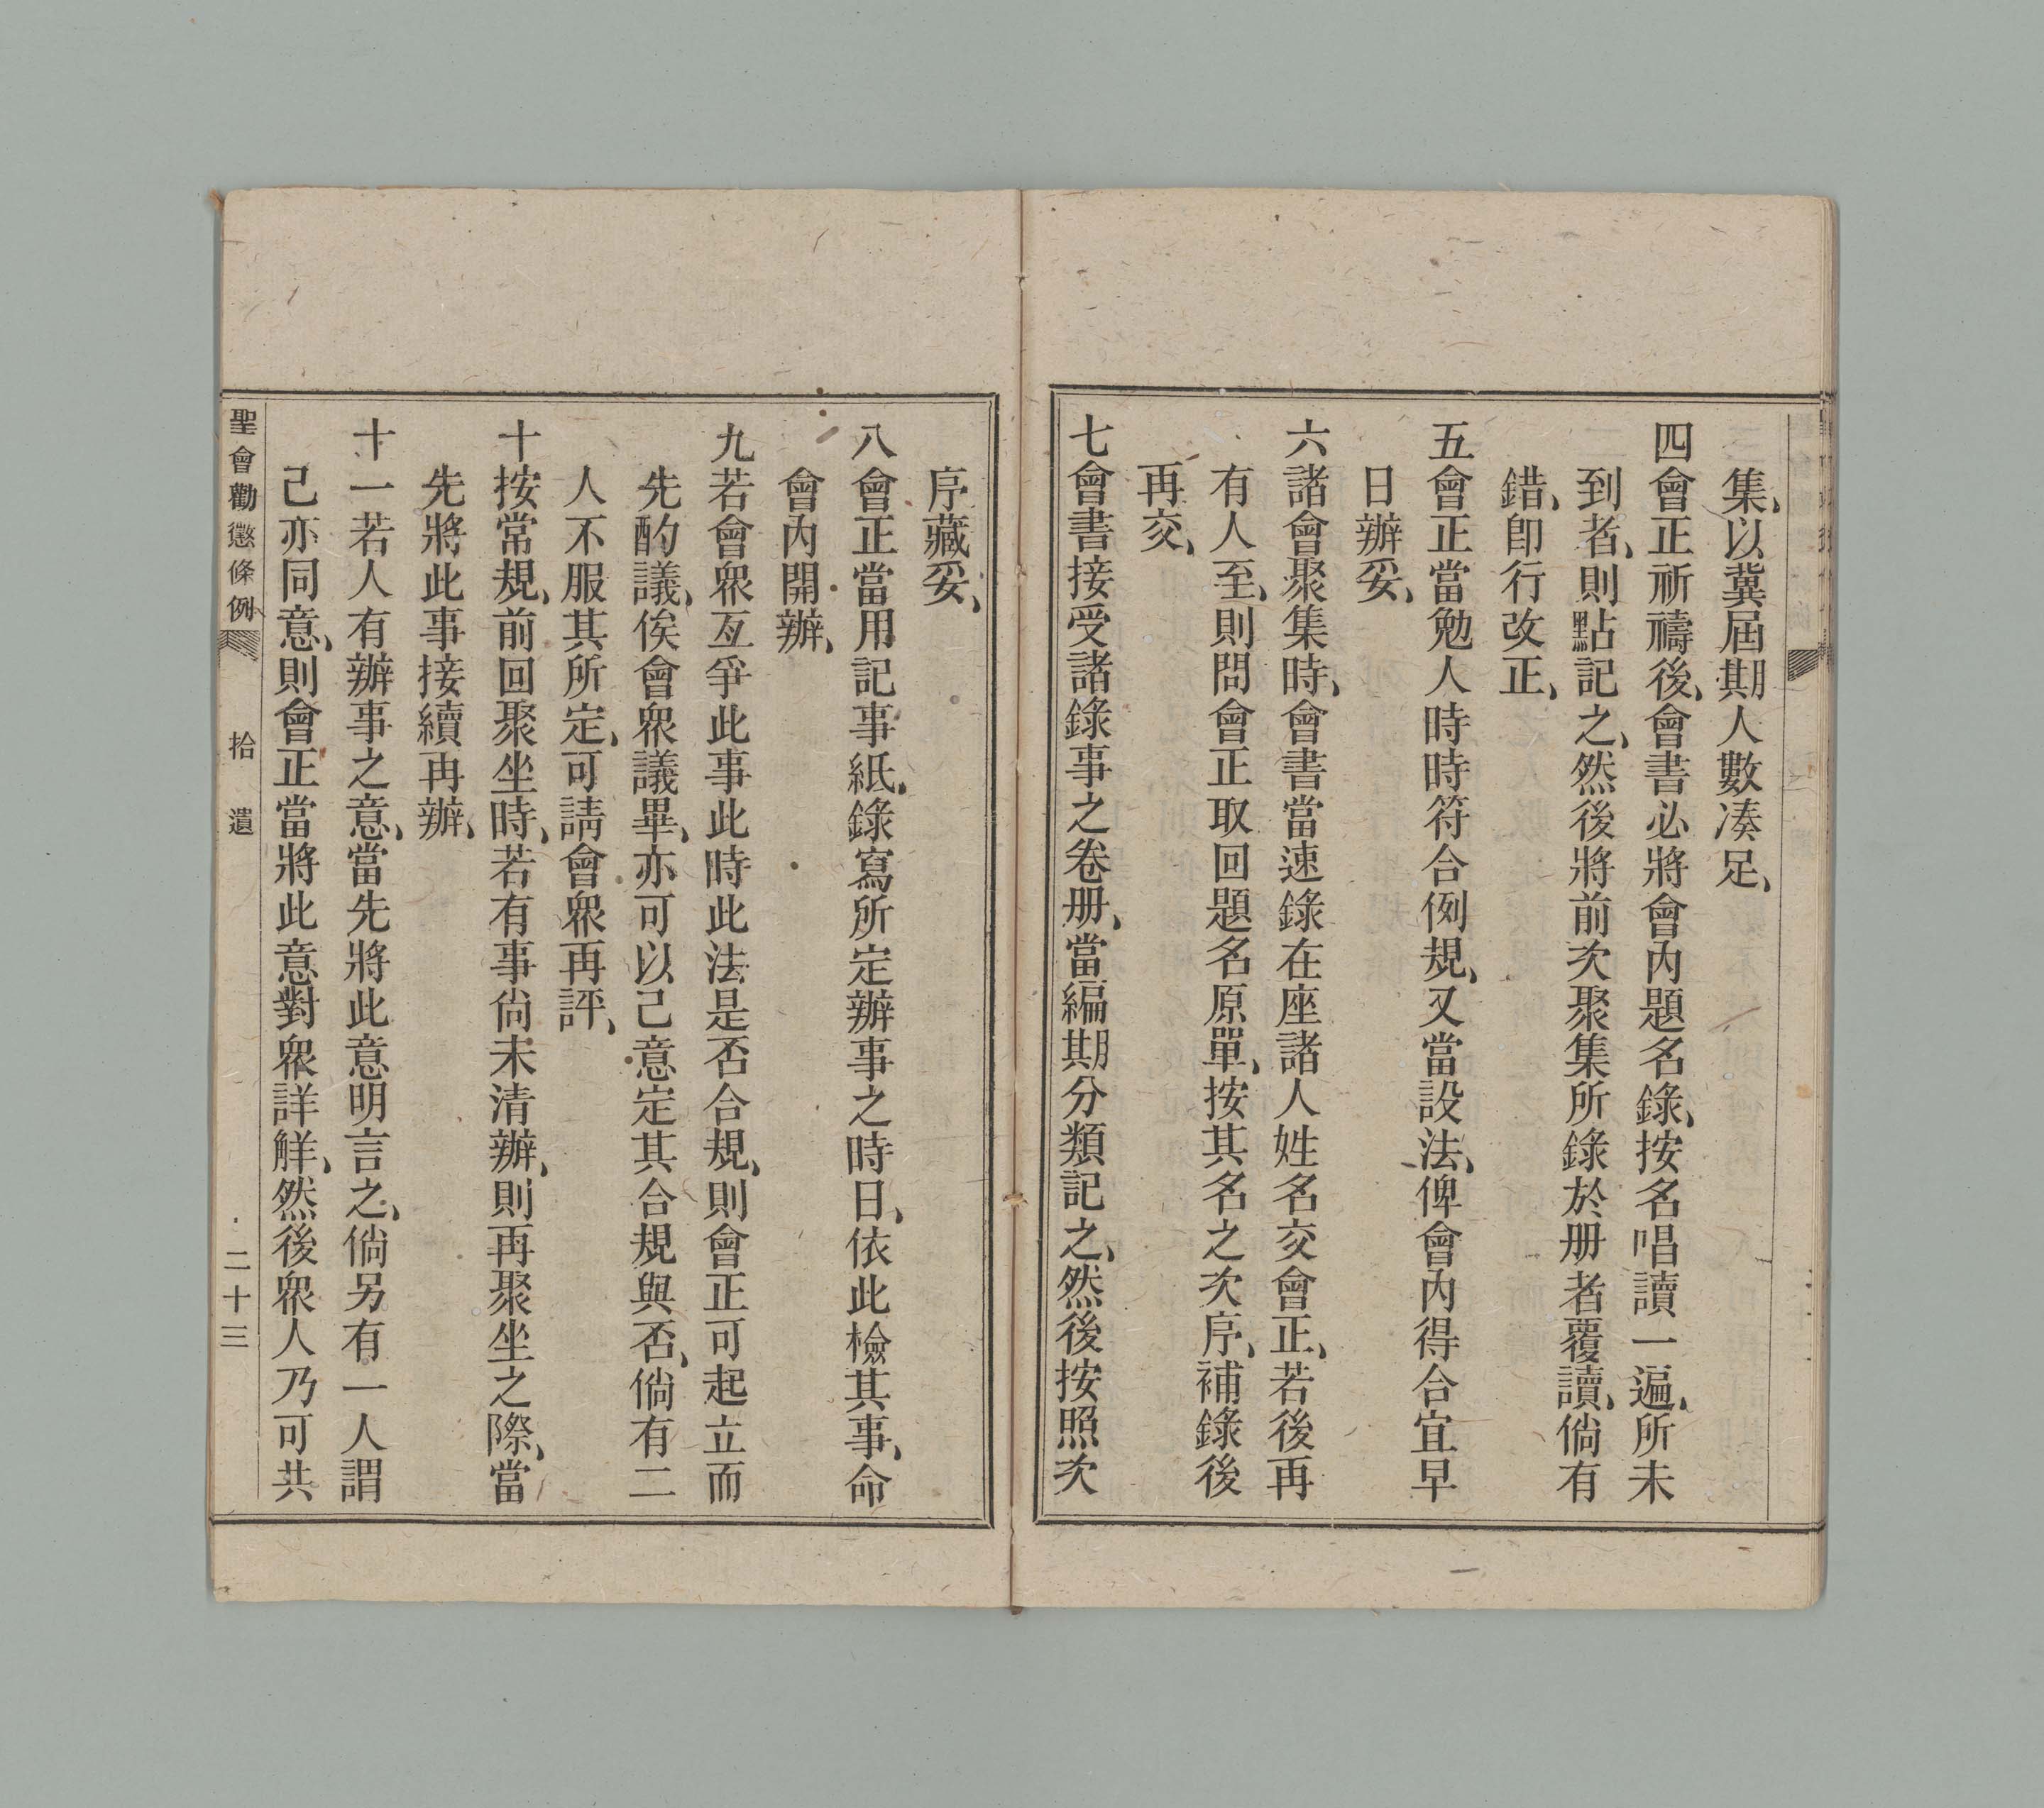 集、以冀屆期人數湊足、
四會正祈禱後、會書必將會內題名錄、按名唱讀一遍、所未
到者、則點記之、然後將前次聚集所錄於册者覆讀、倘有
錯、卽行改正、
五會正當勉人時時符合例規、又當設法、俾會內得合宜早
日辦妥、
六諸會聚集時、會書當速錄在座諸人姓名交會正、若後再
有人至、則問會正取回題名原單、按其名之次序、補錄後
再交、
七會書接受諸錄事之卷册、當編期分類記之、然後按照次
序藏妥、
八會正當用記事紙、錄寫所定辦事之時日、依此檢其事、命
會內開辦、
九若會衆互爭此事此時此法是否合規、則會正可起立而
先酌議、俟會衆議畢、亦可以己意定其合規與否、倘有二
人不服其所定、可請會衆再評、
十按常規、前回聚坐時、若有事尙未清辦、則再聚坐之際、當
先將此事接續再辦、
十一若人有辦事之意、當先將此意明言之、倘另有一人謂
己亦同意、則會正當將此意對衆詳解、然後衆人乃可共
聖會勸懲條例 拾遺 二十三